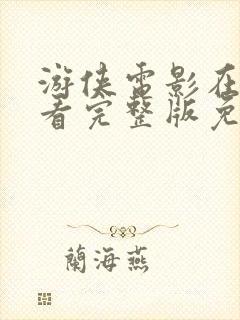 游侠电影在
看完整版免
蘭海燕